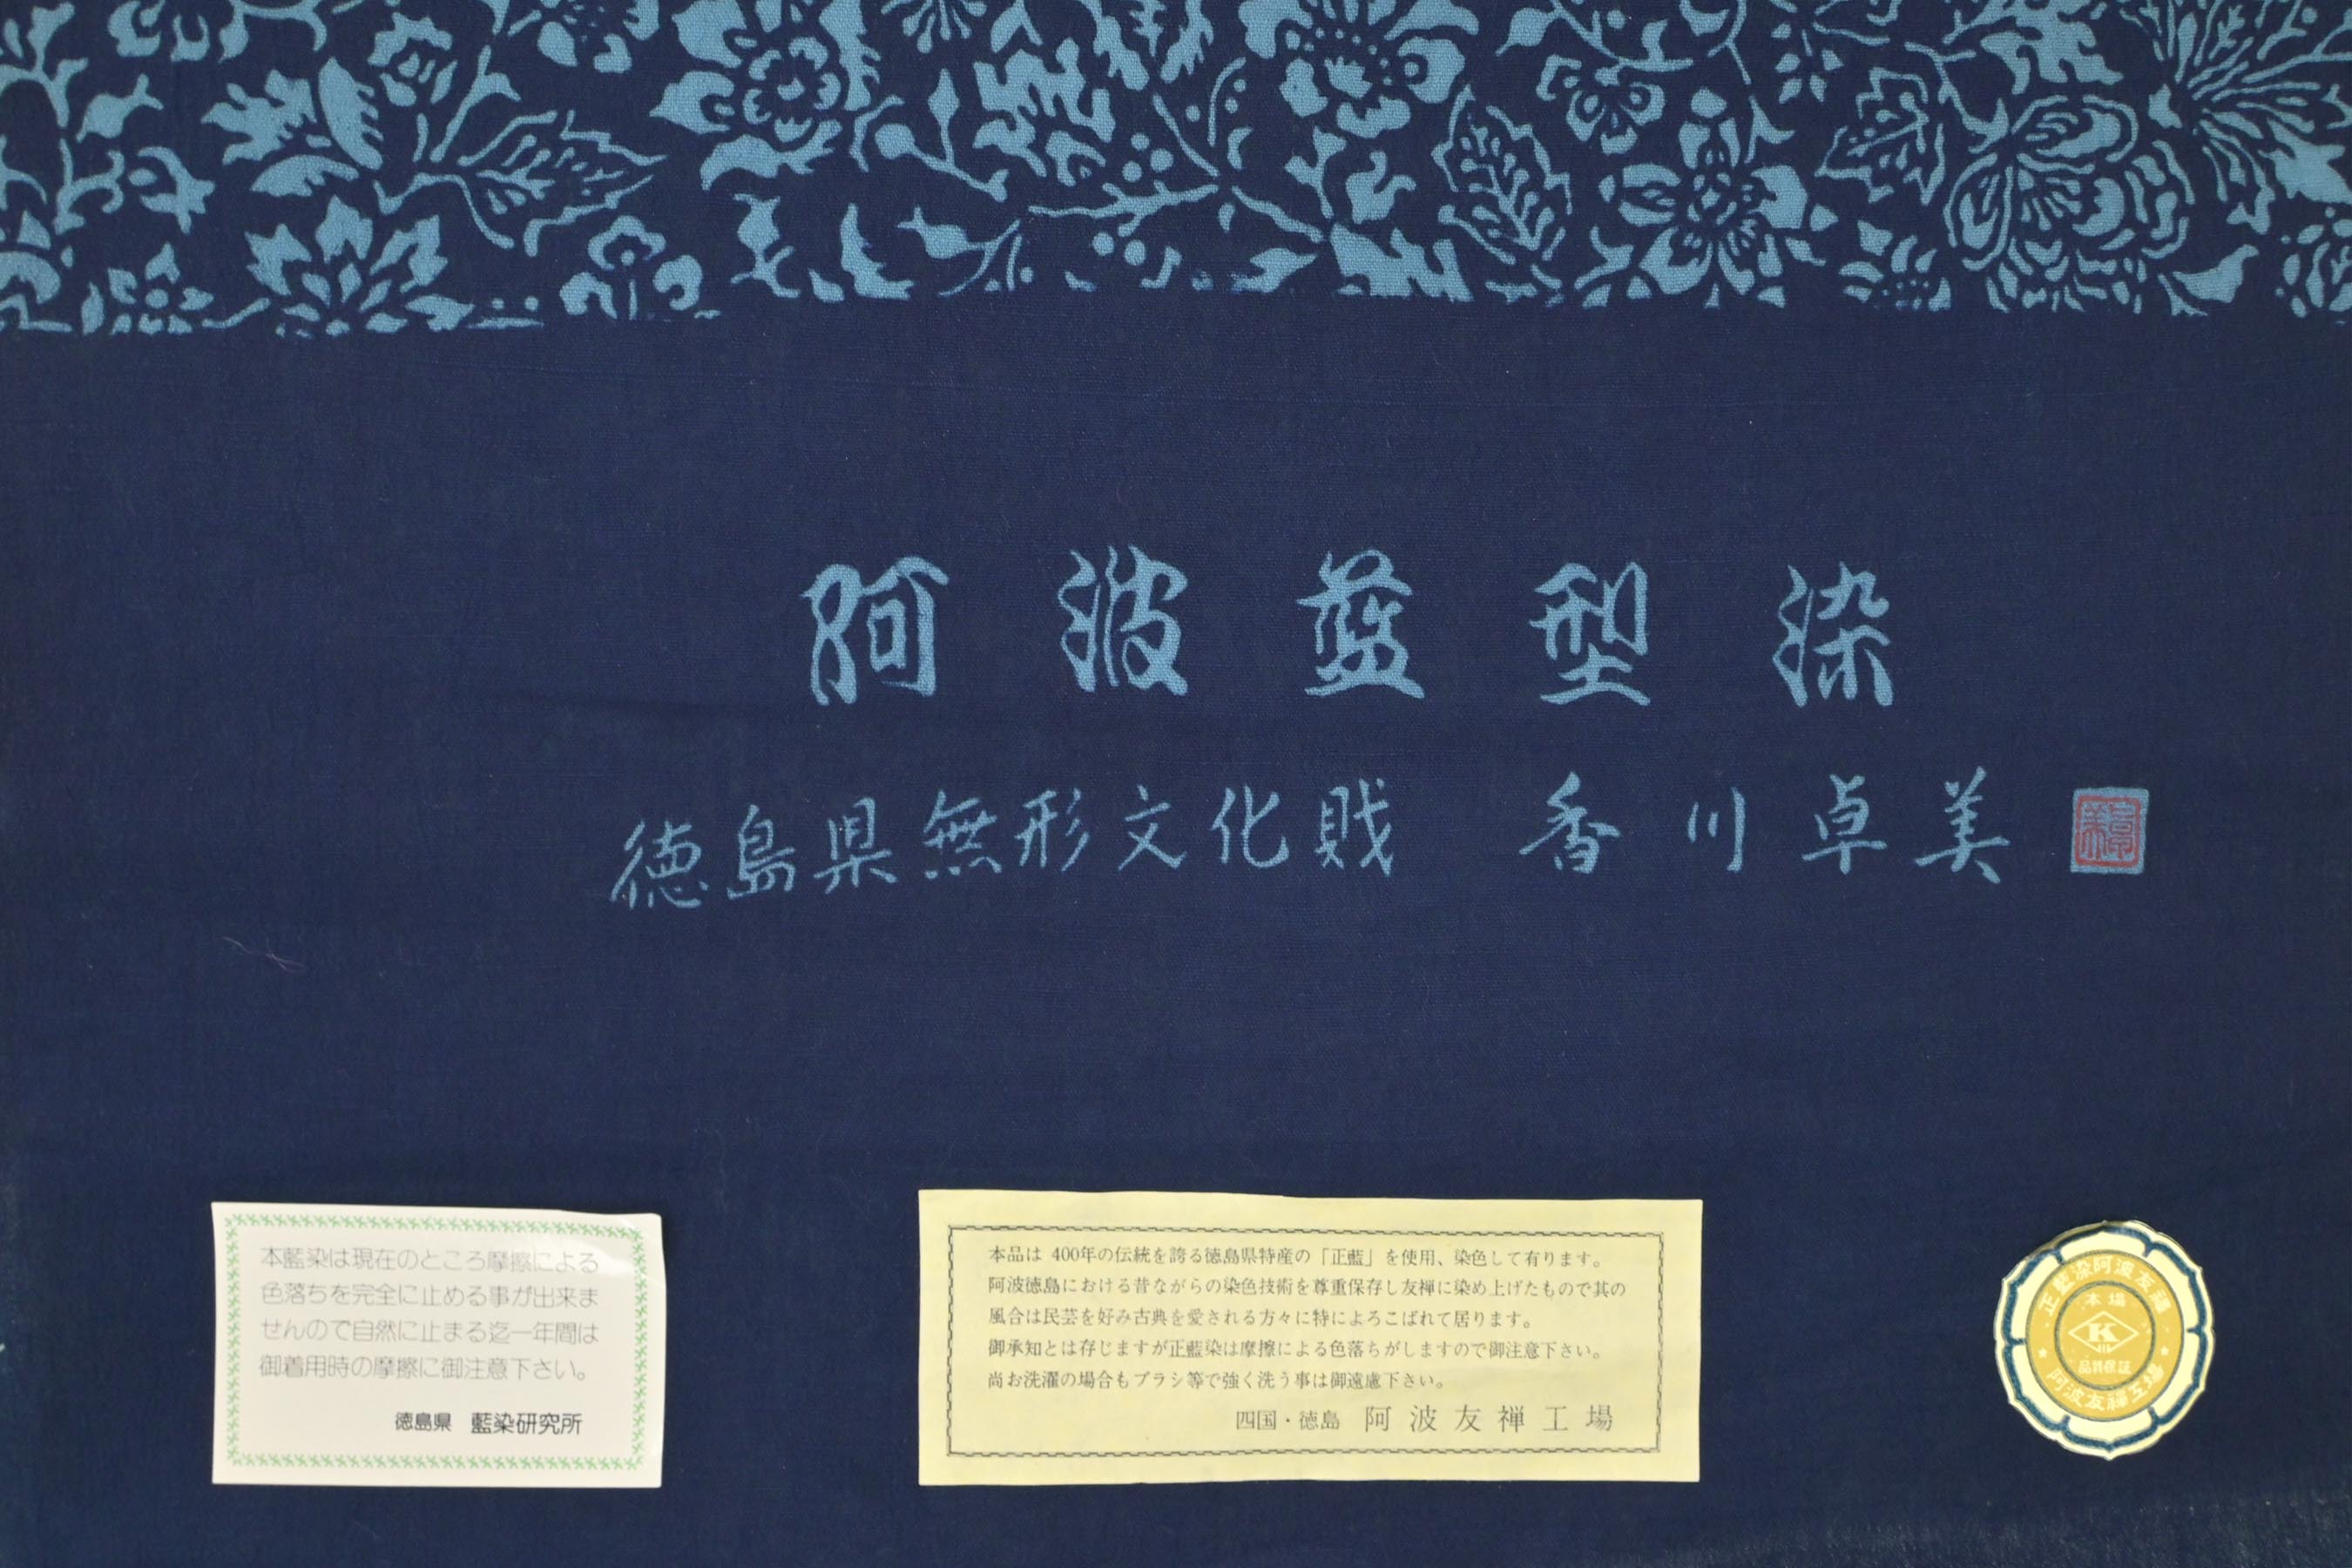 阿波藍型染
徳島県無形文化財 香川卓美
本藍染は現在のところ摩擦による
色落ちを完全に止める事が出来ま
せんので自然に止まる迄一年間は
御着用時の摩擦に御注意下さい。
徳島県 藍染研究所
本品は 400年の伝統を誇る徳島県特産の「正藍」を使用、染色して有ります。
阿波徳島における昔ながらの染色技術を尊重保存し友禅に染め上げたもので其の
風合は民芸を好み古典を愛される方々に特によろこばれて居ります。
御承知とは存じますが正藍染は摩擦による色落ちがしますので御注意下さい。
尚お洗濯の場合もブラシ等で強く洗う事は御遠慮下さい。
四国・徳島 阿波友禅工場
正藍染阿波友禅
本場
K
品質保証
阿波友禅工場